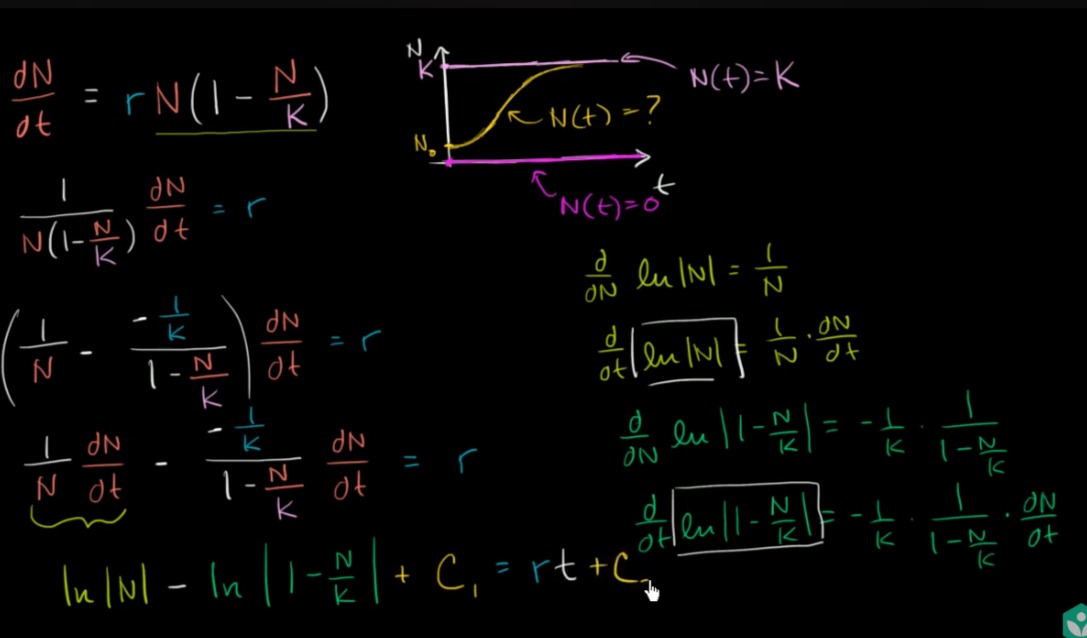 dN/dt = rN(1 - N/K)
1/(N(1 - N/K)) dN/dt = r
(1/N - (-1/K)/(1 - N/K)) dN/dt = r
1/N dN/dt - (-1/K)/(1 - N/K) dN/dt = r
ln|N| - ln|1 - N/K| + C₁ = rt + C
N
K
N(t) = K
N(t) = ?
N₀
t
N(t) = 0
d/dN ln|N| = 1/N
d/dt [ln|N|] = 1/N · dN/dt
d/dN ln|1 - N/K| = -1/K · 1/(1 - N/K)
d/dt [ln|1 - N/K|] = -1/K · 1/(1 - N/K) · dN/dt